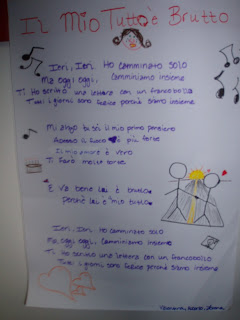 Il Mio Tutto è Brutto
Ieri, Ieri Ho camminato solo
Ma oggi oggi, camminiamo insieme
Ti Ho scritto una lettera con un francobollo
Tutti i giorni sono felice perchè siamo insieme
Mi sei il mio primo pensiero
il fuoco è più forte
Il mio amore è vero
Ti Farò morte
E va bene lei è brutto
perchè lei è "mio brutto
Ieri, Ieri Ho camminato solo
Ma oggi oggi, camminiamo insieme
Ti Ho scritto una lettera con un francobollo
Tutti i giorni sono felice perchè siamo insieme